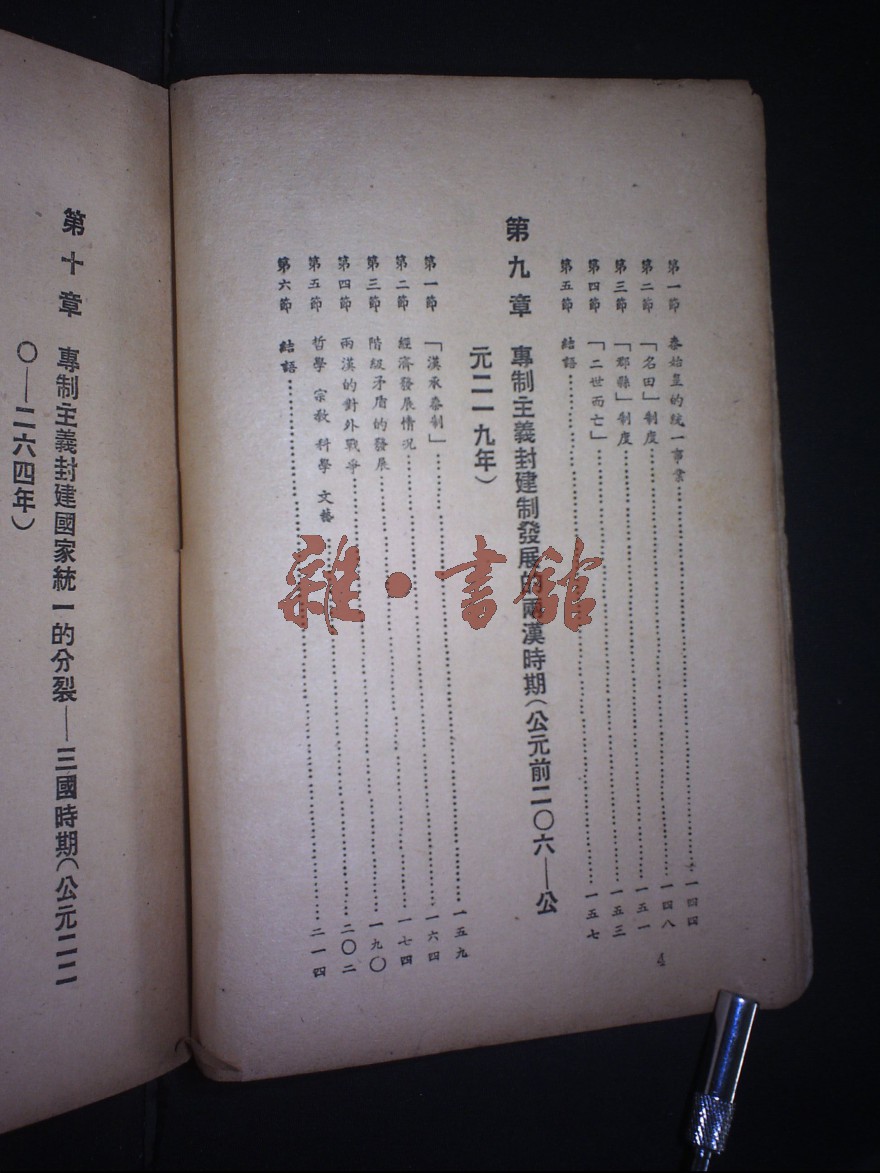 第一節 秦始皇的統一事業……一四四
第二節 「名田」制度……一四八
第三節 「郡縣」制度……一五一
第四節 「二世而亡」……一五三
第五節 結語……一五七
第九章 專制主義封建制發展的兩漢時期(公元前二〇六——公
元二一九年)
第一節 「漢承秦制」……一五九
第二節 經濟發展情况……一六四
第三節 階級矛盾的發展……一七四
第四節 兩漢的對外戰爭……一九〇
第五節 哲學 宗教 科學 文藝……二〇二
第六節 結語……二一四
4
第十章 專制主義封建國家統一的分裂——三國時期(公元二二
〇——二六四年)
雜·書館